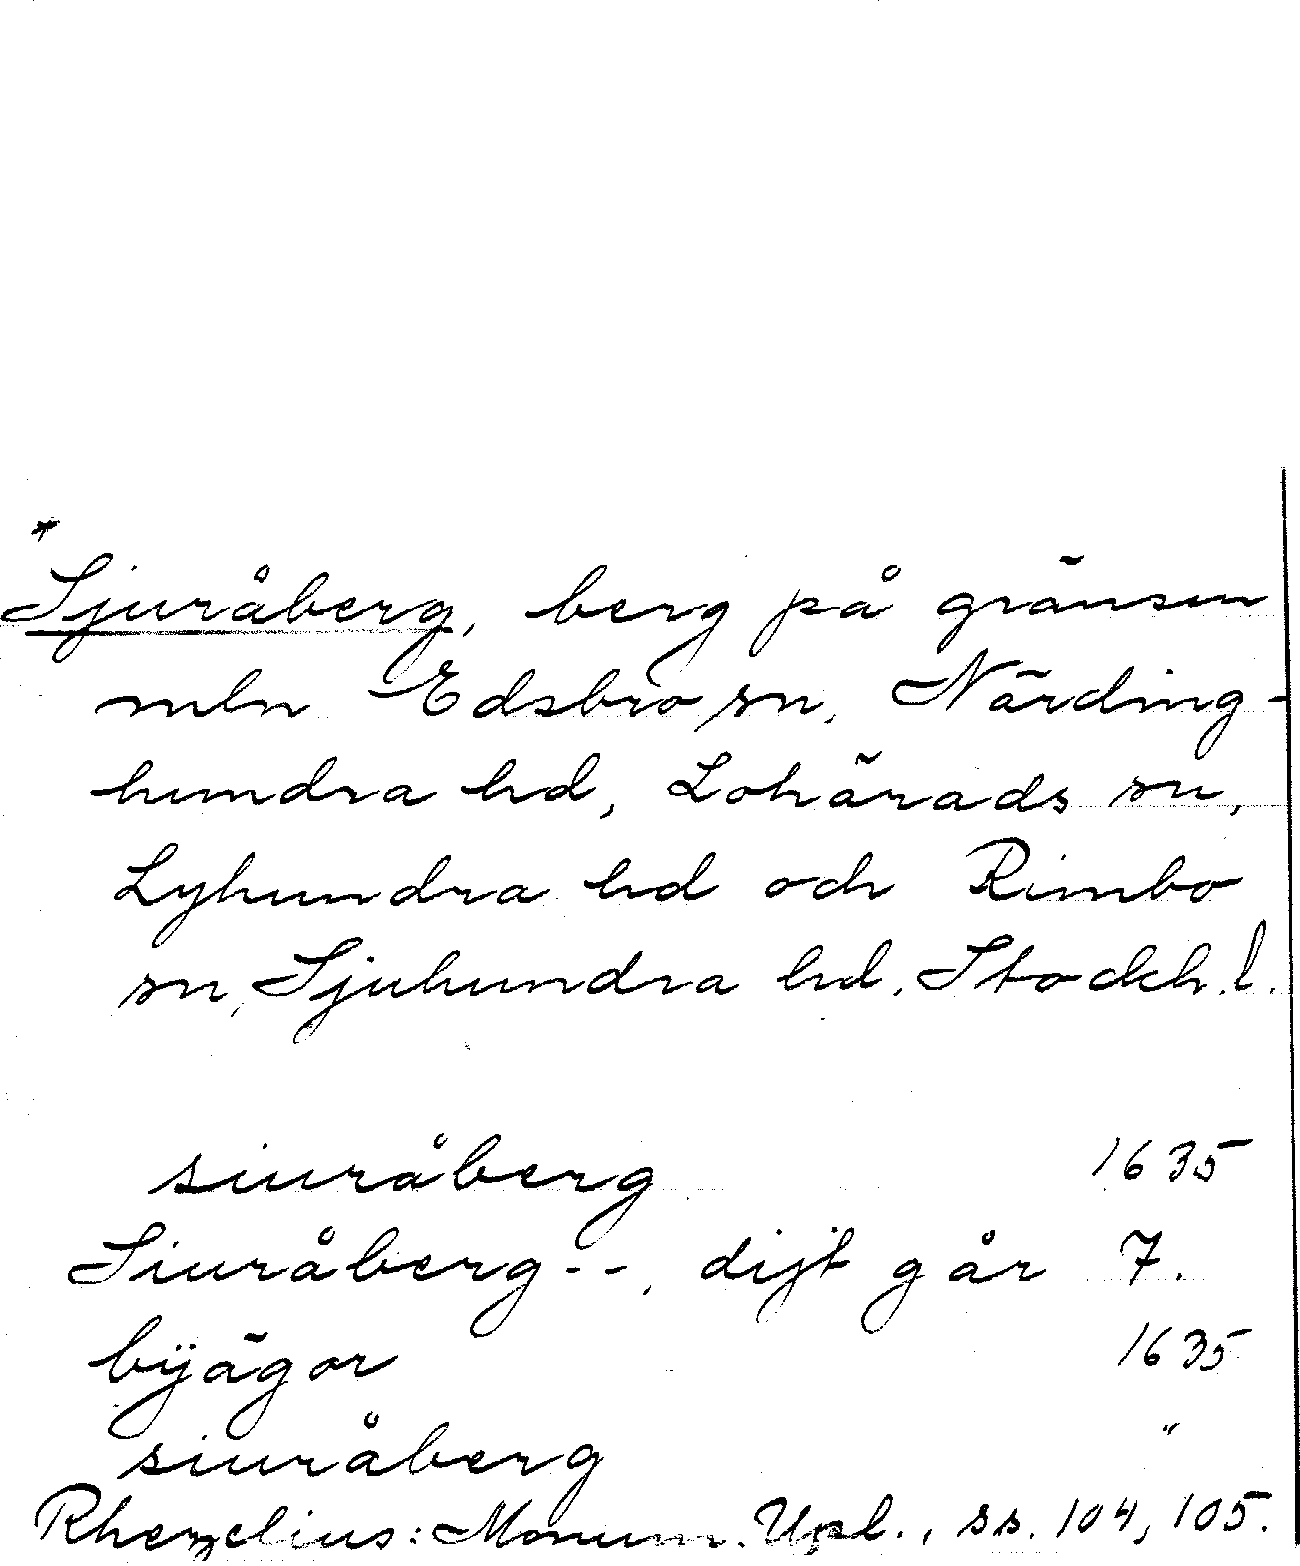 *
Sjuråberg, berg på gränsen
mln Edsbro sn, Närding-
hundra hd, Lohärads sn,
Lyhundra hd och Rimbo
sn, Sjuhundra hd. Stockh. l.
siuråberg 1635
Siuråberg--, dijt går 7.
bÿägor 1635
siuråberg "
Rhezelius: Monum. Upl., ss. 104, 105.